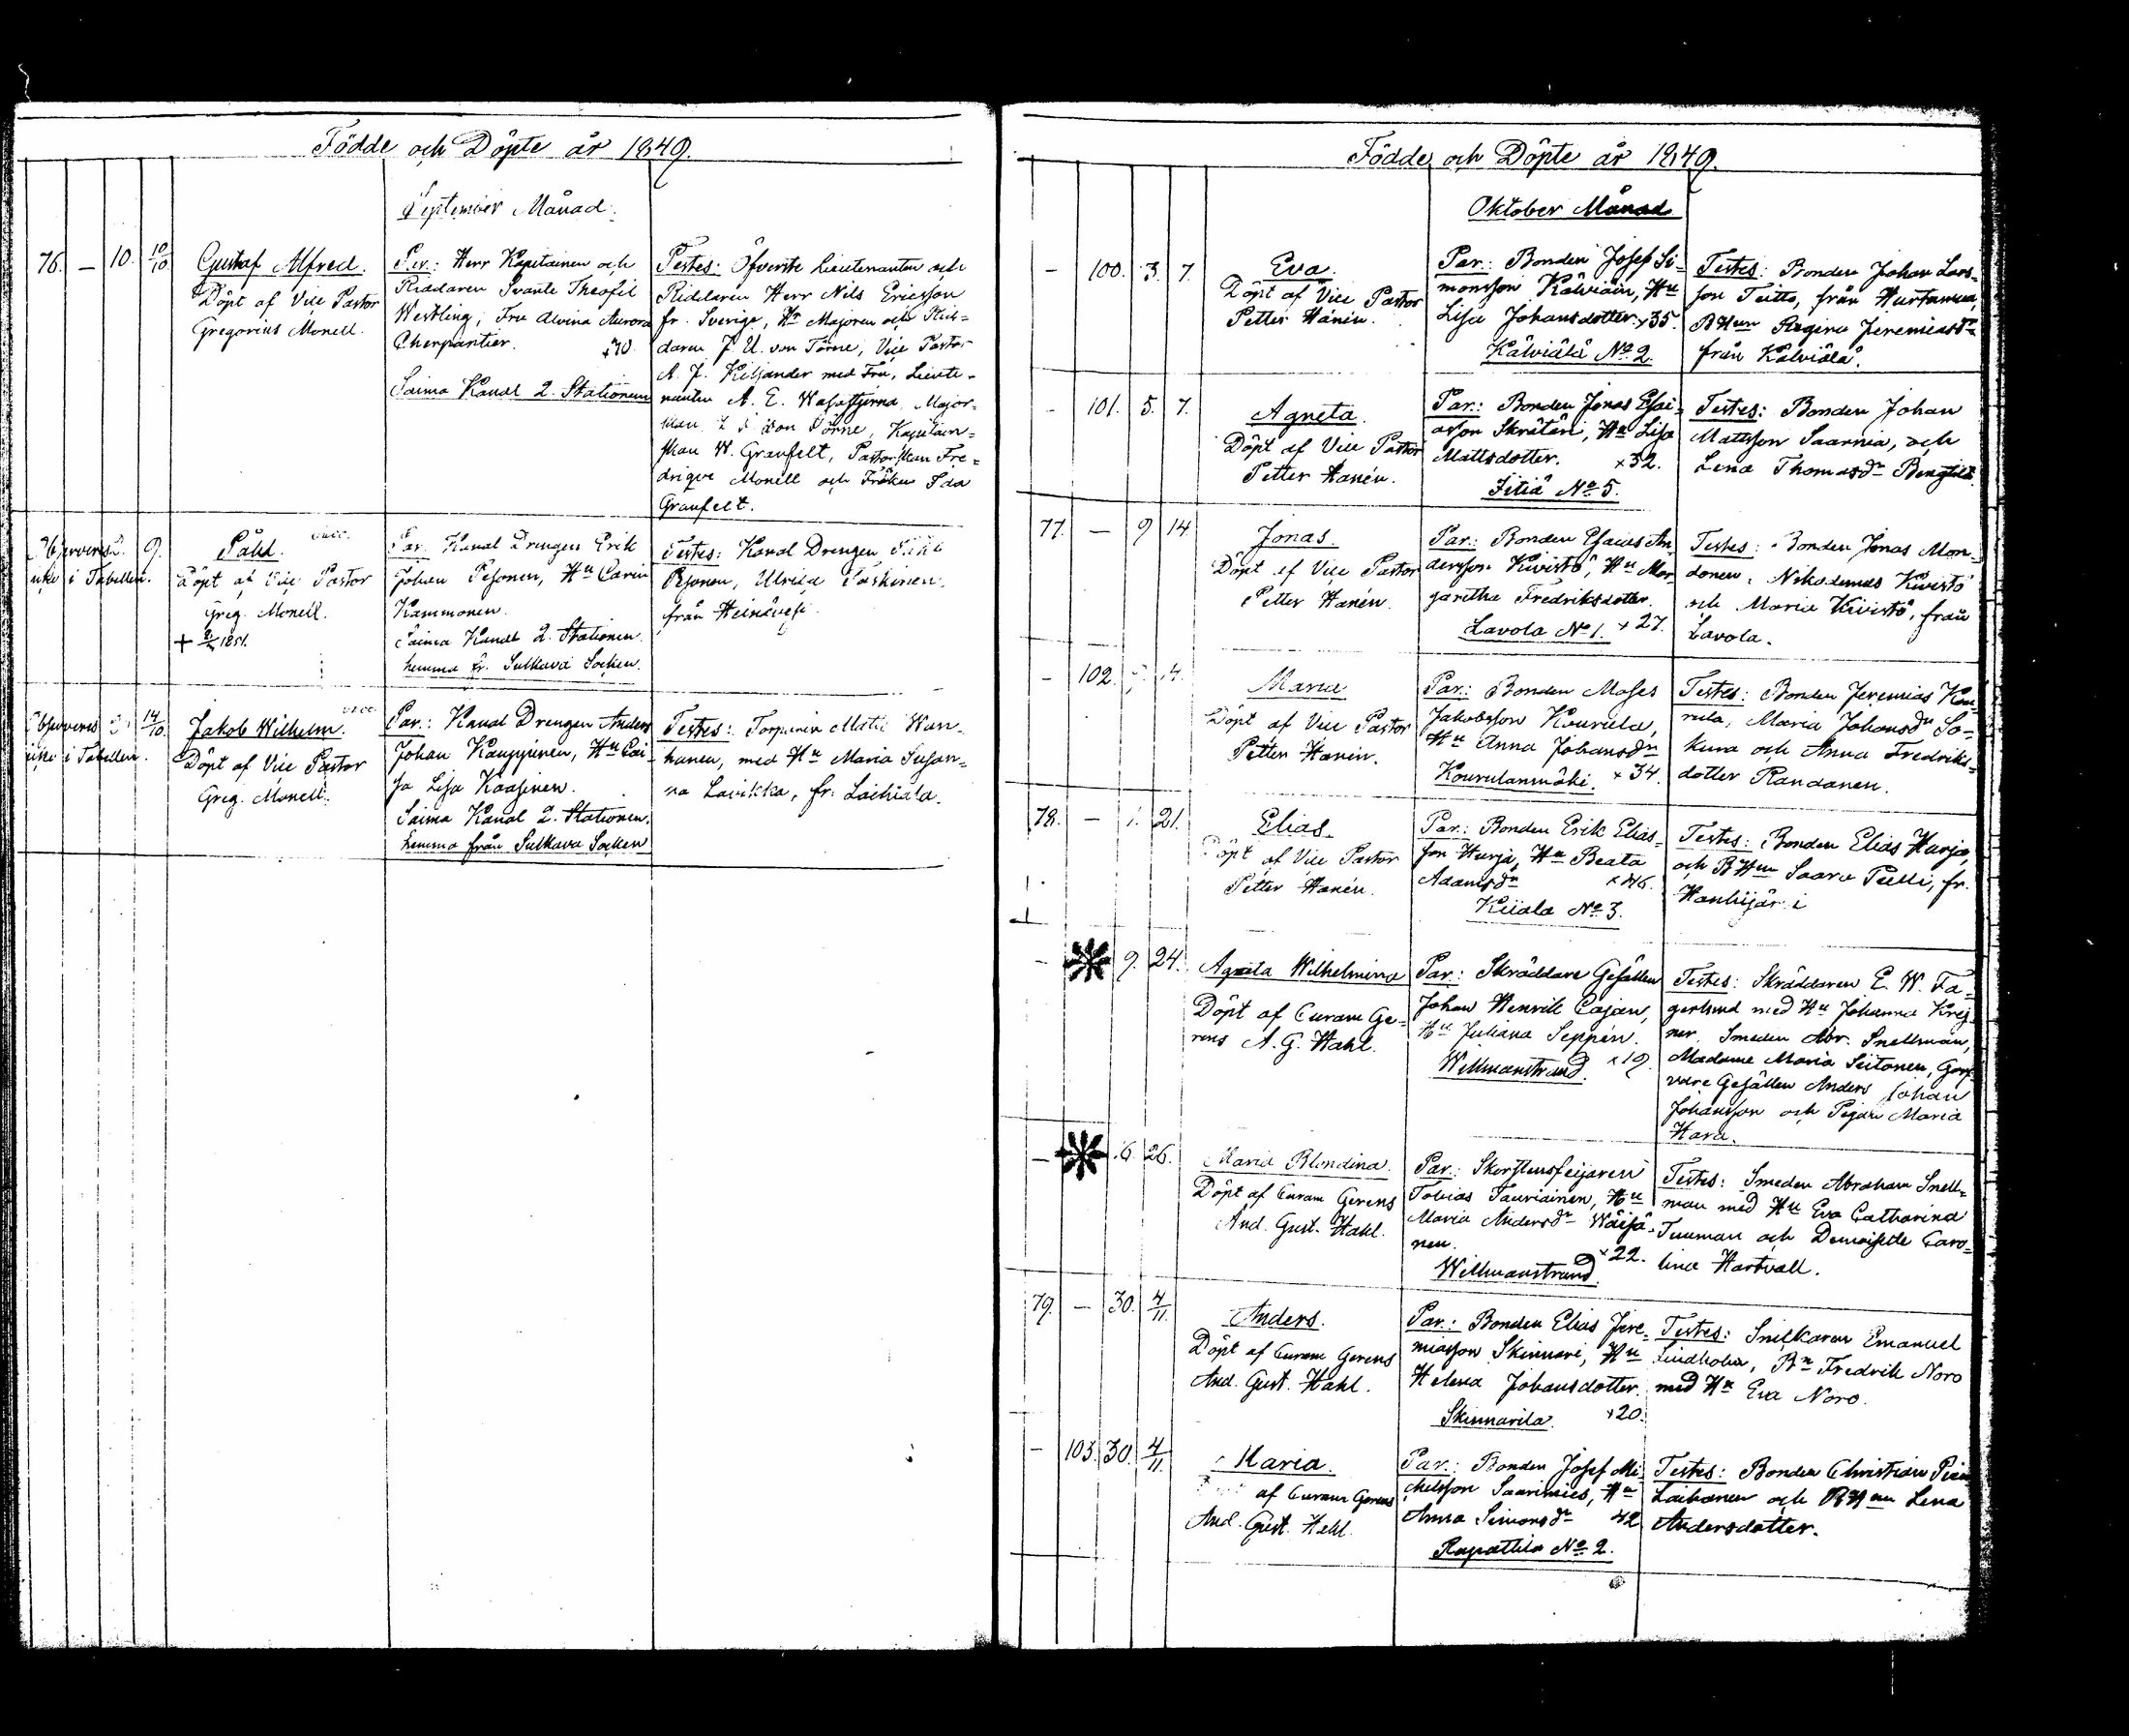 Födde och Döpte år 1849.
September Månad.
76. — 10. 10/10
Gustaf Alfred.
Döpt af Vice Pastor
Gregorius Monell.
Par.: Herr Kapitainen och
Riddaren Svante Theofil
Westling, Fru Alvina Aurora
Charpantier.
Saima Kanal 2. Stationen
Testes: Öfverste Lieutenanten och
Riddaren Herr Nils Ericsson
fr. Sverige, Hr Majoren och Rid-
daren J. U. von Törne, Vice Pastor
A. J. Kiljander med Fru, Lieute-
nanten A. E. Wasastjerna, Major-
skan von Törne, Kapitain-
skan W. Granfelt, Pastorskan Fre-
drique Monell och Fröken Ida
Granfelt.
Observeras 9.
icke i Tabellen.
Påhl. vacc.
Döpt af Vice Pastor
Greg. Monell.
+ 1851.
Par. Kanal Drengen Erik
Johan Pesonen, Hu Carin
Kammonen.
Saima Kanal 2. Stationen
hemma fr. Sulkava Socken.
Testes: Kanal Drengen Påhl
Pesonen, Ulrika Paskinen
från Heinävesi.
Observeras 14/10
icke i Tabellen.
Jakob Wilhelm. vacc.
Döpt af Vice Pastor
Greg. Monell.
Par.: Kanal Drengen Anders
Johan Kauppinen, Hu Cai-
sa Lisa Kaasinen.
Saima Kanal 2. Stationen.
hemma från Sulkava Socken
Testes: Torparen Matti Wan-
hanen, med Hu Maria Susan-
na Lavikka, fr. Laihiala.
Födde och Döpte år 1849.
Oktober Månad
— 100. 3. 7.
Eva.
Döpt af Vice Pastor
Petter Hanén.
Par.: Bonden Josef Si-
monsson Kälviäin, Hu
Lisa Johansdotter. x35.
Kälviälä No 2.
Testes: Bonden Johan Lars-
son Teitto, från Hurtanma,
BHun Regina Jeremiasdr
från Kälviälä.
— 101. 5. 7.
Agneta.
Döpt af Vice Pastor
Petter Hanén.
Par.: Bonden Jonas Esai-
asson Skrätäri, Hu Lisa
Mattsdotter. x32.
Iitiä No 5.
Testes: Bonden Johan
Mattsson Saarnia, och
Lena Thomasdr
77. — 9 14.
Jonas.
Döpt af Vice Pastor
Petter Hanén.
Par.: Bonden Esaias An-
dersson Kivistö, Hu Mar-
garetha Fredriksdotter.
Lavola No 1. x27.
Testes: Bonden Jonas Mon-
donen, Nikodemus Kivistö
och Maria Kivistö, från
Lavola.
— 102. 14.
Maria
Döpt af Vice Pastor
Petter Hanén.
Par.: Bonden Moses
Jakobsson Kourula,
Hu Anna Johansdr
Kourulanmäki. x34.
Testes: Bonden Jeremias Kou-
rula, Maria Johansdr So-
kura och Anna Fredriks-
dotter Randanen.
78. — 21.
Elias.
Döpt af Vice Pastor
Petter Hanén.
Par.: Bonden Erik Elias-
son Hurja, Hu Beata
Adamsdr x46.
Kiiala No 3.
Testes: Bonden Elias Hurja,
och BHun Saara Pelli, fr.
Hanhijärvi
— 9. 24.
Agneta Wilhelmina
Döpt af Curam Ge-
rens A. G. Hahl.
Par.: Skräddare Gesällen
Johan Henrik Cajan,
Hu Juliana Seppén.
Willmanstrand. x19.
Testes: Skräddaren E. W. Fa-
gerlund med Hu Johanna Krej-
ner, Smeden Abr. Snellman,
Madame Maria Seitonen, Garf-
vare Gesällen Anders Johan
Johansson och Pigan Maria
Hara.
— 6. 26.
Maria Blondina.
Döpt af Curam Gerens
And. Gust. Hahl.
Par.: Skorstensfejaren
Tobias Tauriainen, Hu
Maria Andersdr Wäisä-
nen. x22.
Willmanstrand.
Testes: Smeden Abraham Snell-
man med Hu Eva Catharina
Tuuman och Demoiselle Caro-
lina Hartvall.
79. — 30. 4/11.
Anders.
Döpt af Curam Gerens
And. Gust. Hahl.
Par.: Bonden Elias Jere-
miasson Skinnari, Hu
Helena Johansdotter.
Skinnarila. x20.
Testes: Snickaren Emanuel
Lindholm, Bn Fredrik Noro
med Hu Eva Noro.
— 103. 30. 4/11.
Maria.
af Curam Gerens
And. Gust. Hahl.
Par.: Bonden Josef Mi-
chelsson Saarimies, Hu
Anna Simonsdr 42
Rapattila No 2.
Testes: Bonden Christian
Laihanen och BHun Lena
Andersdotter.